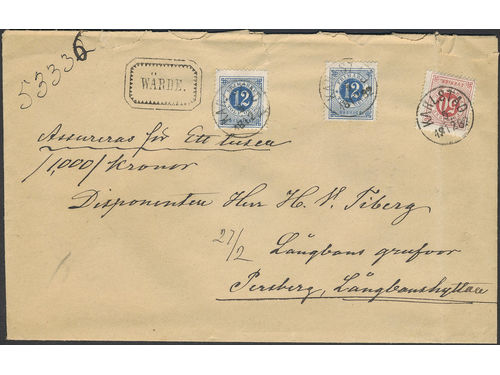 53336
WÄRDE.
12
12
50
KARLSTAD
Assureras för Ett tusen
/1,000/ kronor
Disponenten Herr H. V. Tiberg
27/2
Långbans grufvor
Persberg, Långbanshyttan